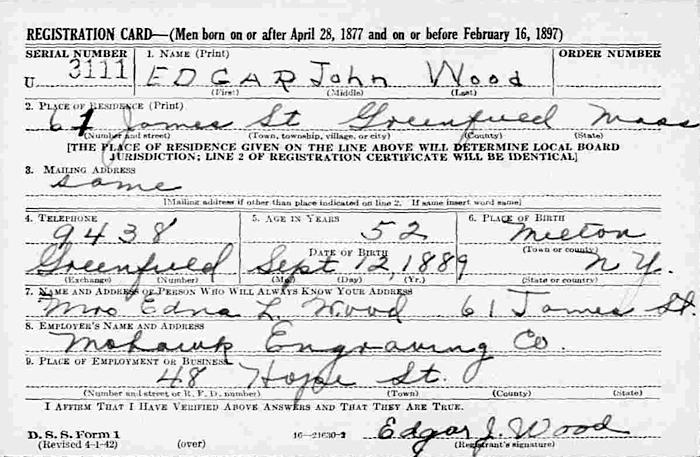 REGISTRATION CARD—(Men born on or after April 28, 1877 and on or before February 16, 1897)
SERIAL NUMBER 1. NAME (Print) ORDER NUMBER
U 3111 EDGAR John Wood
(First) (Middle) (Last)
2. PLACE OF RESIDENCE (Print)
61 James St Greenfield Mass
(Number and street) (Town, township, village, or city) (County) (State)
[THE PLACE OF RESIDENCE GIVEN ON THE LINE ABOVE WILL DETERMINE LOCAL BOARD
JURISDICTION; LINE 2 OF REGISTRATION CERTIFICATE WILL BE IDENTICAL]
3. MAILING ADDRESS
Same
[Mailing address if other than place indicated on line 2. If same insert word same]
4. TELEPHONE 5. AGE IN YEARS 6. PLACE OF BIRTH
9438 52 Milton
DATE OF BIRTH (Town or county)
Greenfield Sept 12, 1889 N.Y.
(Exchange) (Number) (Mo.) (Day) (Yr.) (State or country)
7. NAME AND ADDRESS OF PERSON WHO WILL ALWAYS KNOW YOUR ADDRESS
Mrs Edna L. Wood 61 James St.
8. EMPLOYER'S NAME AND ADDRESS
Mohawk Engraving Co.
9. PLACE OF EMPLOYMENT OR BUSINESS
48 Hope St.
(Number and street or R. F. D. number) (Town) (County) (State)
I AFFIRM THAT I HAVE VERIFIED ABOVE ANSWERS AND THAT THEY ARE TRUE.
D. S. S. Form 1 Edgar J. Wood
(Revised 4-1-42) (over) 16—21630-2 (Registrant's signature)